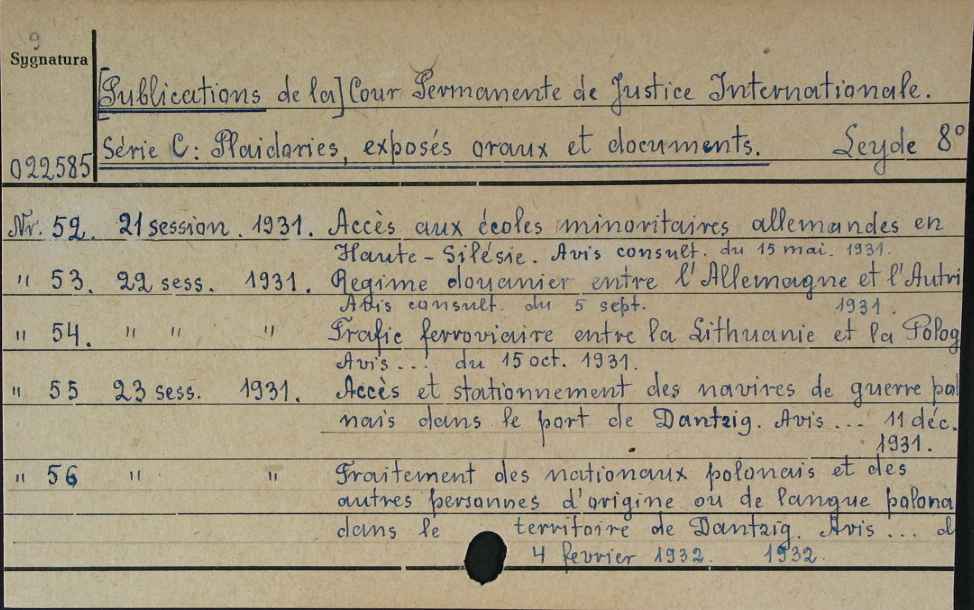 9
Sygnatura
[Publications de la] Cour Permanente de Justice Internationale.
Série C: Plaidories, exposés oraux et documents. Leyde 8°
022585
Nr. 52. 21 session. 1931. Accès aux écoles minoritaires allemandes en
Haute-Silésie. Avis consult. du 15 mai. 1931.
" 53. 22 sess. 1931. Regime douanier entre l'Allemagne et l'Autri
Avis consult. du 5 sept. 1931.
" 54. " " " Trafic ferroviaire entre la Lithuanie et la Polog
Avis... du 15 oct. 1931.
" 55 23 sess. 1931. Accès et stationnement des navires de guerre pol
nais dans le port de Dantzig. Avis... 11 déc.
1931.
" 56 " " Traitement des nationaux polonais et des
autres personnes d'origine ou de langue polona
dans le territoire de Dantzig. Avis... d
4 fevrier 1932. 1932.